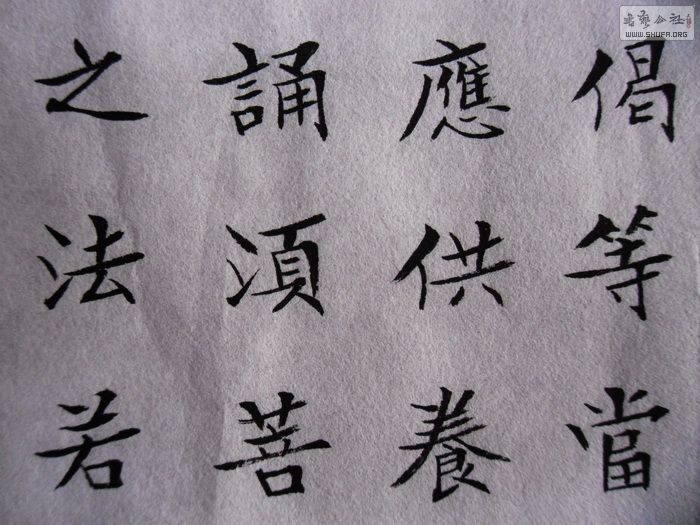 偈等當
應供養
誦湏菩
之法若
书艺公社
WWW.SHUFA.ORG